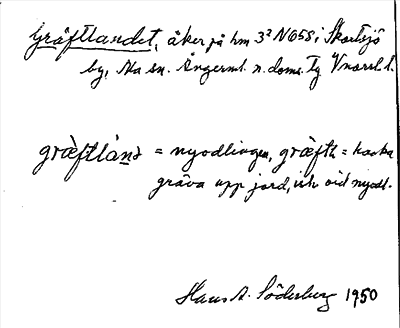 Gräftlandet, åker på hm 3² N658 i Skortsjö
by, Na sn. Ångerml. n. doms. Tg Vnorrl l.
græ̀ftlàn̲d = nyodlingen, græ̀ft = hacka
gräva upp jord, vid nyodl.
Hans A. Söderberg 1950